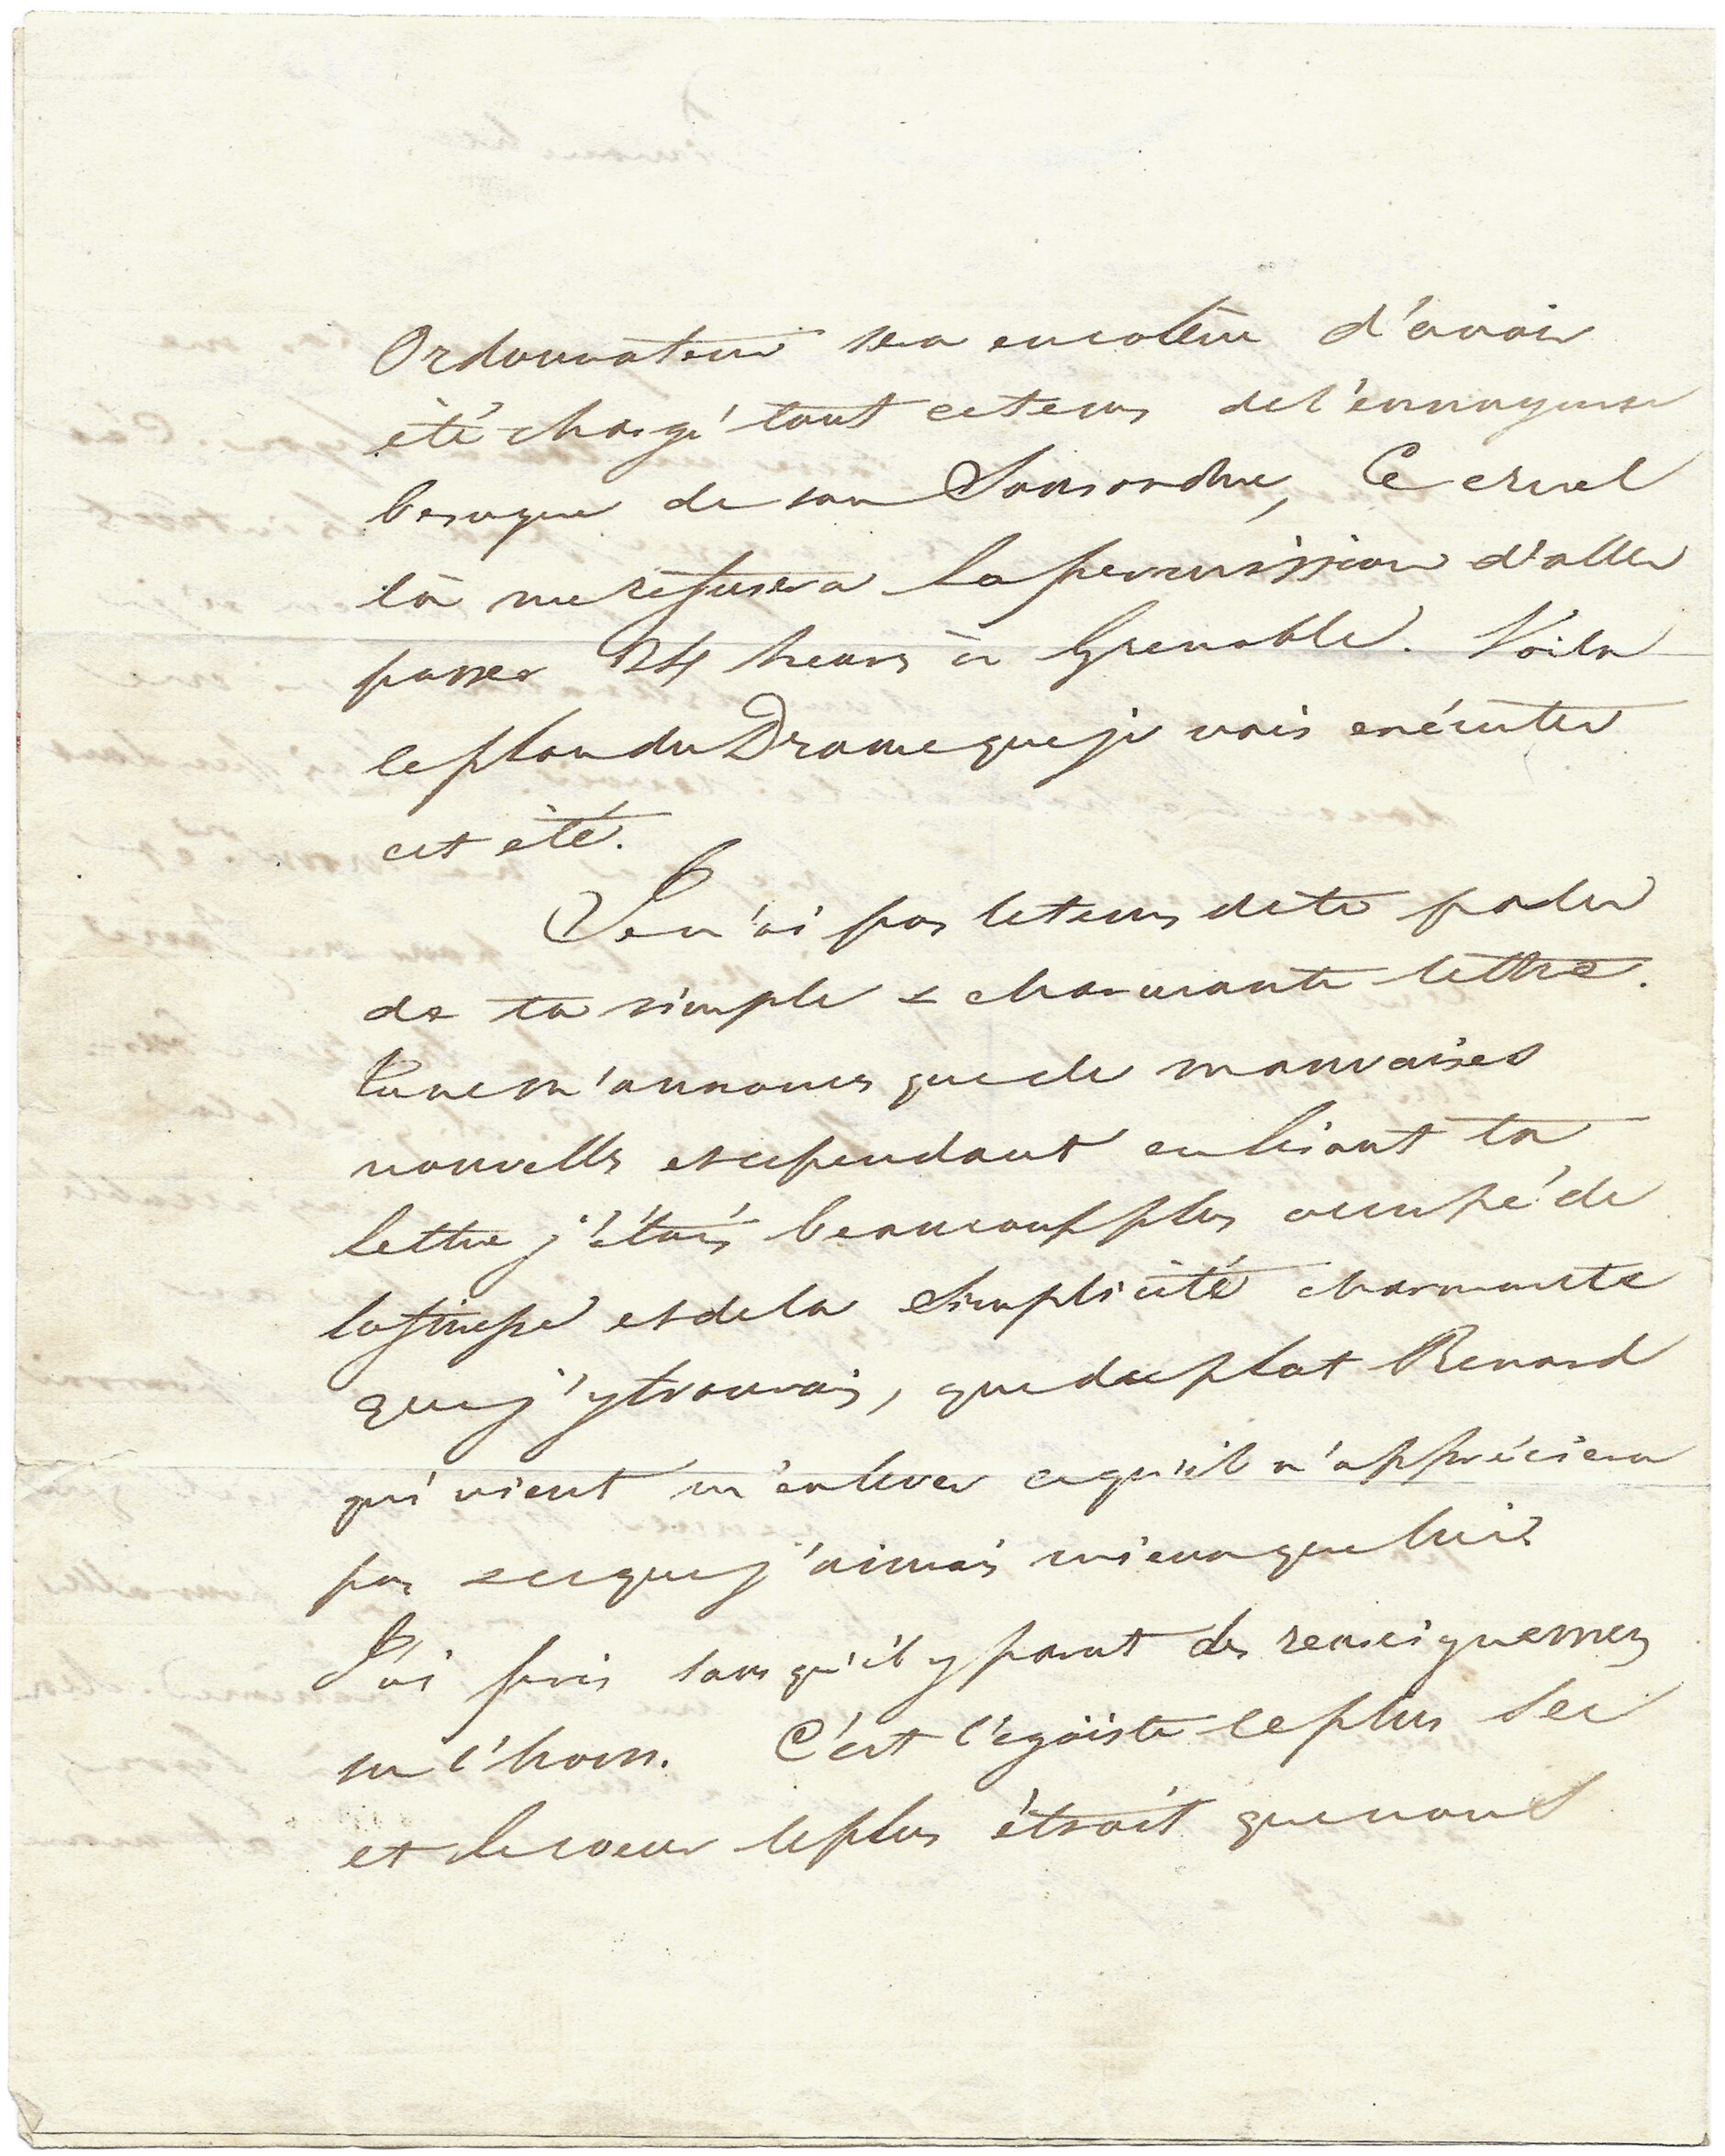 Ordonnateur sera encolère d'avoir
été chargé tout cetems del'ennuyeuse
besogne de son Sousordre, Ce cruel
là me refusera la permission d'aller
passer 24 heures à Grenoble. Voila
leplan du Drame queje vais exécuter
cet été.
Jen'ai pas letems dete parler
de ta simple & charmante lettre.
Tunem'annonces quede mauvaises
nouvelles etcependant enlisant ta
lettre j'étais beaucoup plus occupé de
lafinesse etdela Simplicité charmante
quej'ytrouvais, quedeceplat Renard
qui vient m'enlever cequ'il n'appréciera
pas & ceque j'aimais mieux que lui.
J'ai pris sans qu'il y parut des renseignemens
sur l'hom. C'est l'égoïste leplus Sec
et lecoeur leplus étroit quenous